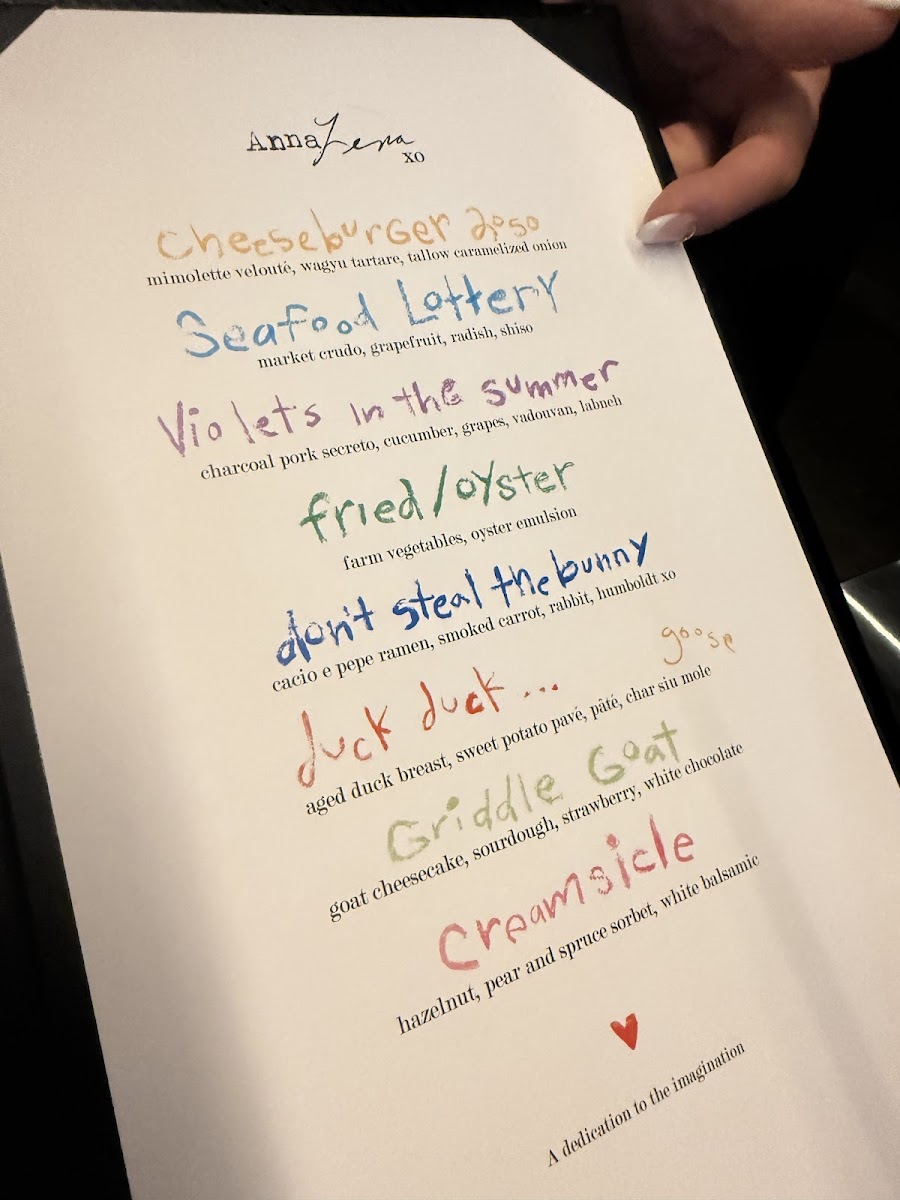 AnnaLena
xo
Cheeseburger 2050
mimolette velouté, wagyu tartare, tallow caramelized onion
Seafood Lottery
market crudo, grapefruit, radish, shiso
Violets in the summer
charcoal pork secreto, cucumber, grapes, vadouvan, labneh
fried/oyster
farm vegetables, oyster emulsion
don't steal the bunny
cacio e pepe ramen, smoked carrot, rabbit, humboldt xo
duck duck... goose
aged duck breast, sweet potato pavé, pâté, char siu mole
Griddle Goat
goat cheesecake, sourdough, strawberry, white chocolate
Creamsicle
hazelnut, pear and spruce sorbet, white balsamic
A dedication to the imagination